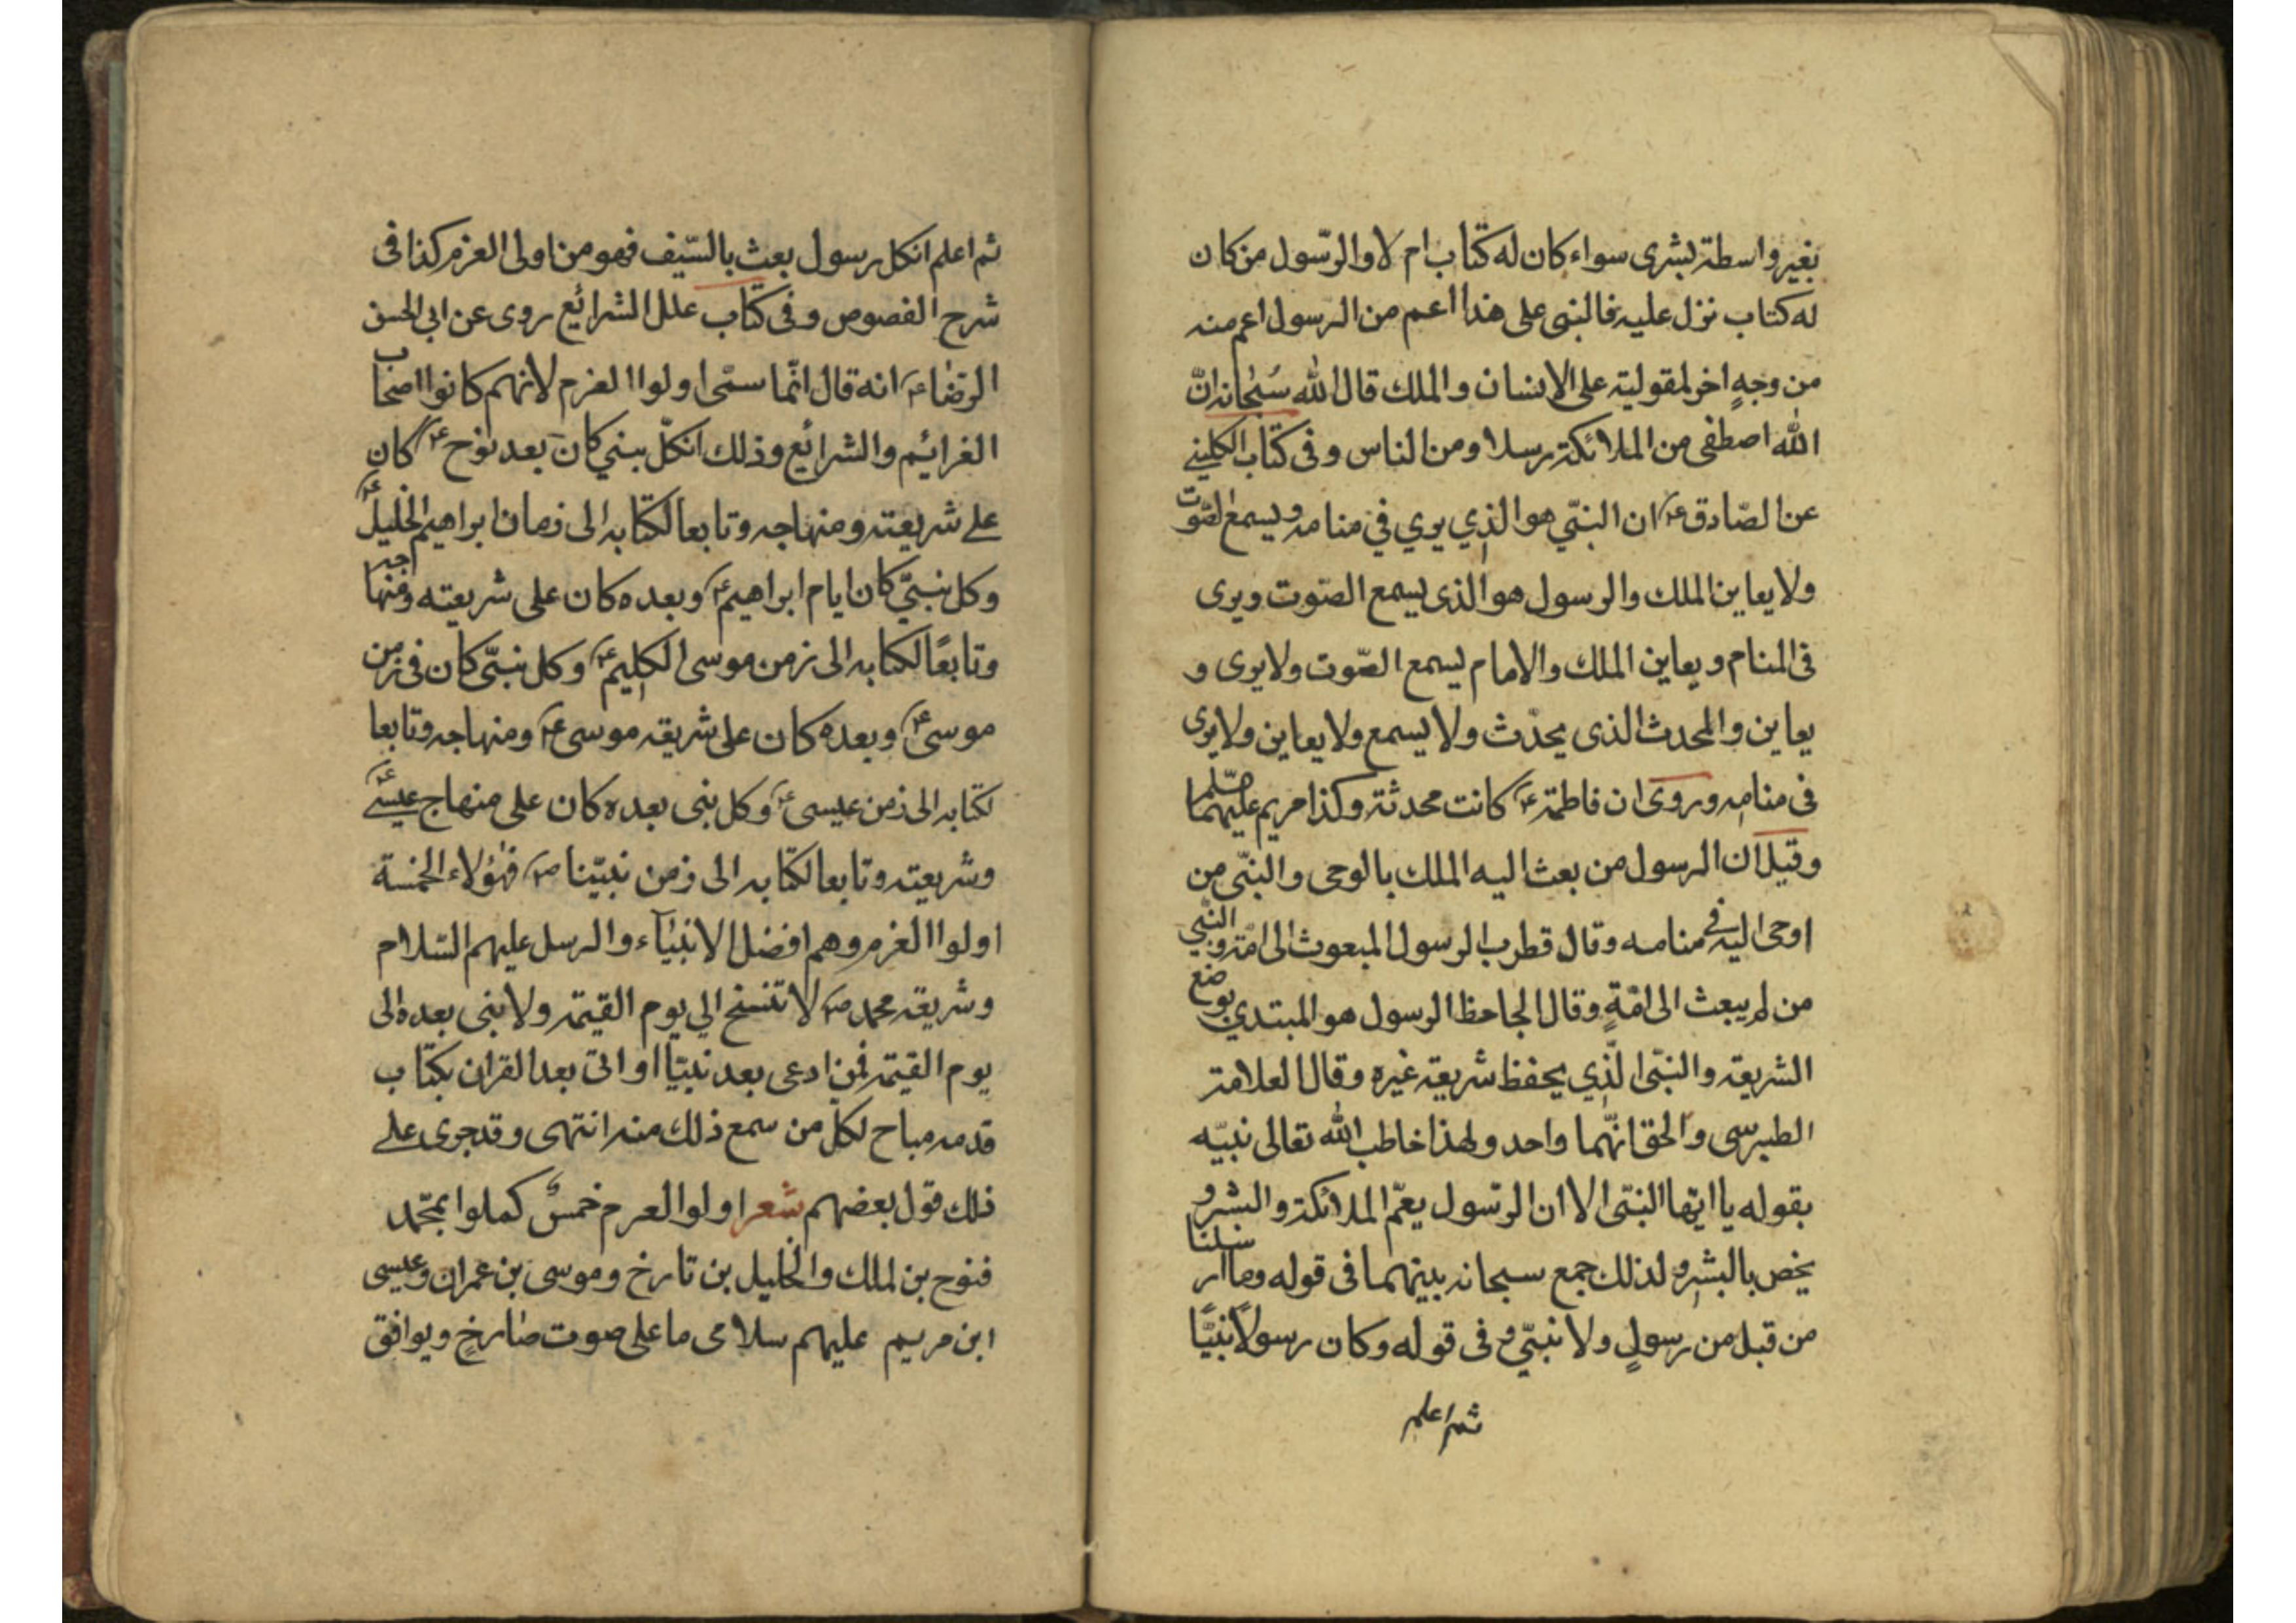 بغير واسطة بشرى سواء كان له كتاب ام لا والرّسول من كان
له كتاب نزل عليه فالنبى على هذا اعم من الرسول اعم منه
من وجهٍ اخر لمقوليته على الانسان والملك قال الله سُبحانه انّ
الله اصطفى من الملائكة رسلا ومن الناس وفى كتاب الكلينى
عن الصّادق عم ان النبّي هو الذي يري في منامه ويسمع الصّوت
ولا يعاين الملك والرسول هو الذى يسمع الصّوت ويرى
فى المنام ويعاين الملك والامام يسمع الصّوت ولا يرى و
يعاين والمحدث الذى يحدّث ولا يسمع ولا يعاين ولا يرى
فى منامه وروى ان فاطمة عم كانت محدثة وكذا مريم عليهما
وقيل ان الرسول من بعث اليه الملك بالوحى والنبّى من
اوحى اليه فى منامه وقال قطرب الرسول المبعوث الى امّة والنبّي
من لم يبعث الى امّةٍ وقال الجاحظ الرسول هو المبتدي بوضع
الشريعة والنبّى الّذي يحفظ شريعة غيره وقال العلامة
الطبرسى والحق انّهما واحد ولهذا خاطب الله تعالى نبيّه
بقوله يا ايها النبّى الا ان الرّسول يعمّ الملائكة والبشر و
يخص بالبشر ولذلك جمع سبحانه بينهما فى قوله وما ارسلنا
من قبل من رسولٍ ولا نبىّ و فى قوله وكان رسولًا نبيًّا
ثم اعلم
ثم اعلم انكل رسول بعث بالسّيف فهو من اولى العزم كذا فى
شرح الفصوص وفى كتاب علل الشرائع روى عن ابى الحسن
الرضا عم انه قال انّما سمّى اولوا العزم لانهم كانوا اصحاب
الغرائم والشرائع وذلك انكلّ نبي كان بعد نوح عم كان
على شريعته ومنهاجه وتابعا لكتابه الى زمان ابراهيم الخليل عم
وكل نبىّ كان ايام ابراهيم عم وبعده كان على شريعته ومنهاجه
وتابعًا لكتابه الى زمن موسى الكليم عم وكل نبىّ كان فى زمن
موسى عم وبعده كان على شريقه موسى عم ومنهاجه وتابعا
لكتابه الى زمن عيسى عم وكل نبى بعده كان على منهاج عيسى عم
وشريعته وتابعا لكتابه الى زمن نبيّنا ص فهؤلاء الخمسة
اولوا العزم وهم افضل الانبياء والرسل عليهم السّلام
وشريقه محمد ص لا تنسخ الي يوم القيمة ولا نبى بعده الى
يوم القيمة فمن ادعى بعد نبيّنا او اتى بعد القران بكتاب
فدمه مباح لكل من سمع ذلك منه انتهى وقد جرى على
ذلك قول بعضهم شعر اولوا لعرم خمسٌ كملوا بمحمّد
فنوح بن لملك والخليل بن تارخ وموسى بن عمران وعيسى
ابن مريم عليهم سلامى ما على صوت صارخٍ ويوافق